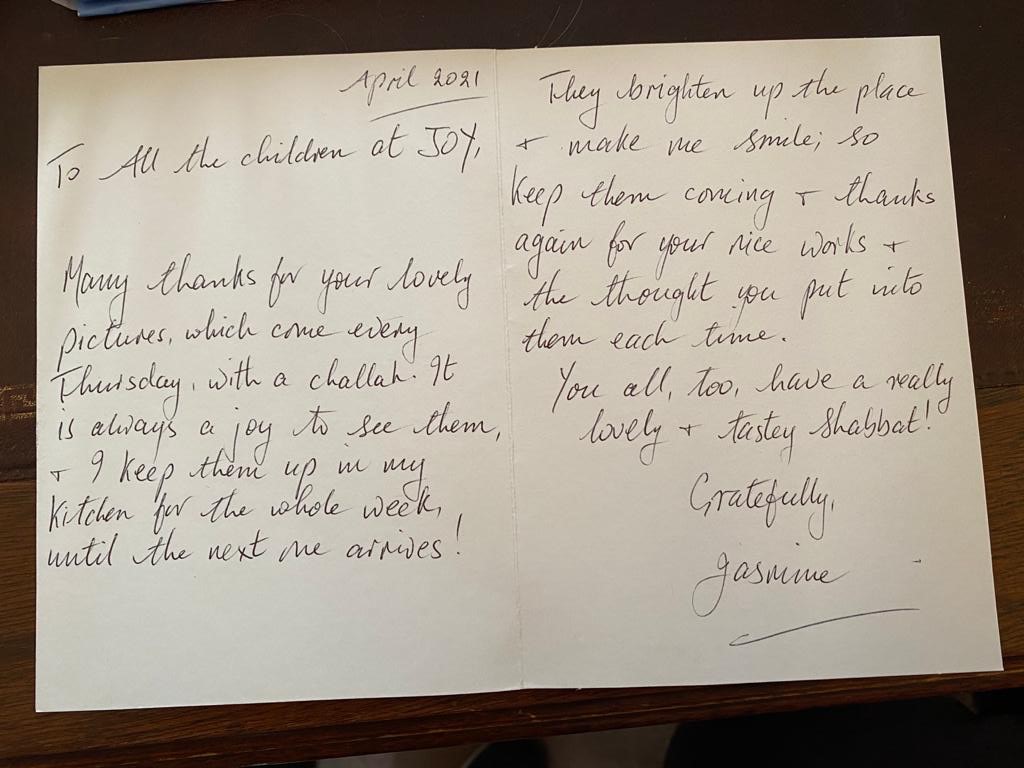 April 2021
To All the children at JOY,
Many thanks for your lovely
pictures, which come every
Thursday, with a challah. It
is always a joy to see them,
+ I keep them up in my
kitchen for the whole week,
until the next one arrives!
They brighten up the place
+ make me smile; so
keep them coming + thanks
again for your nice works +
the thought you put into
them each time.
You all, too, have a really
lovely + tastey Shabbat!
Gratefully,
Jasmine